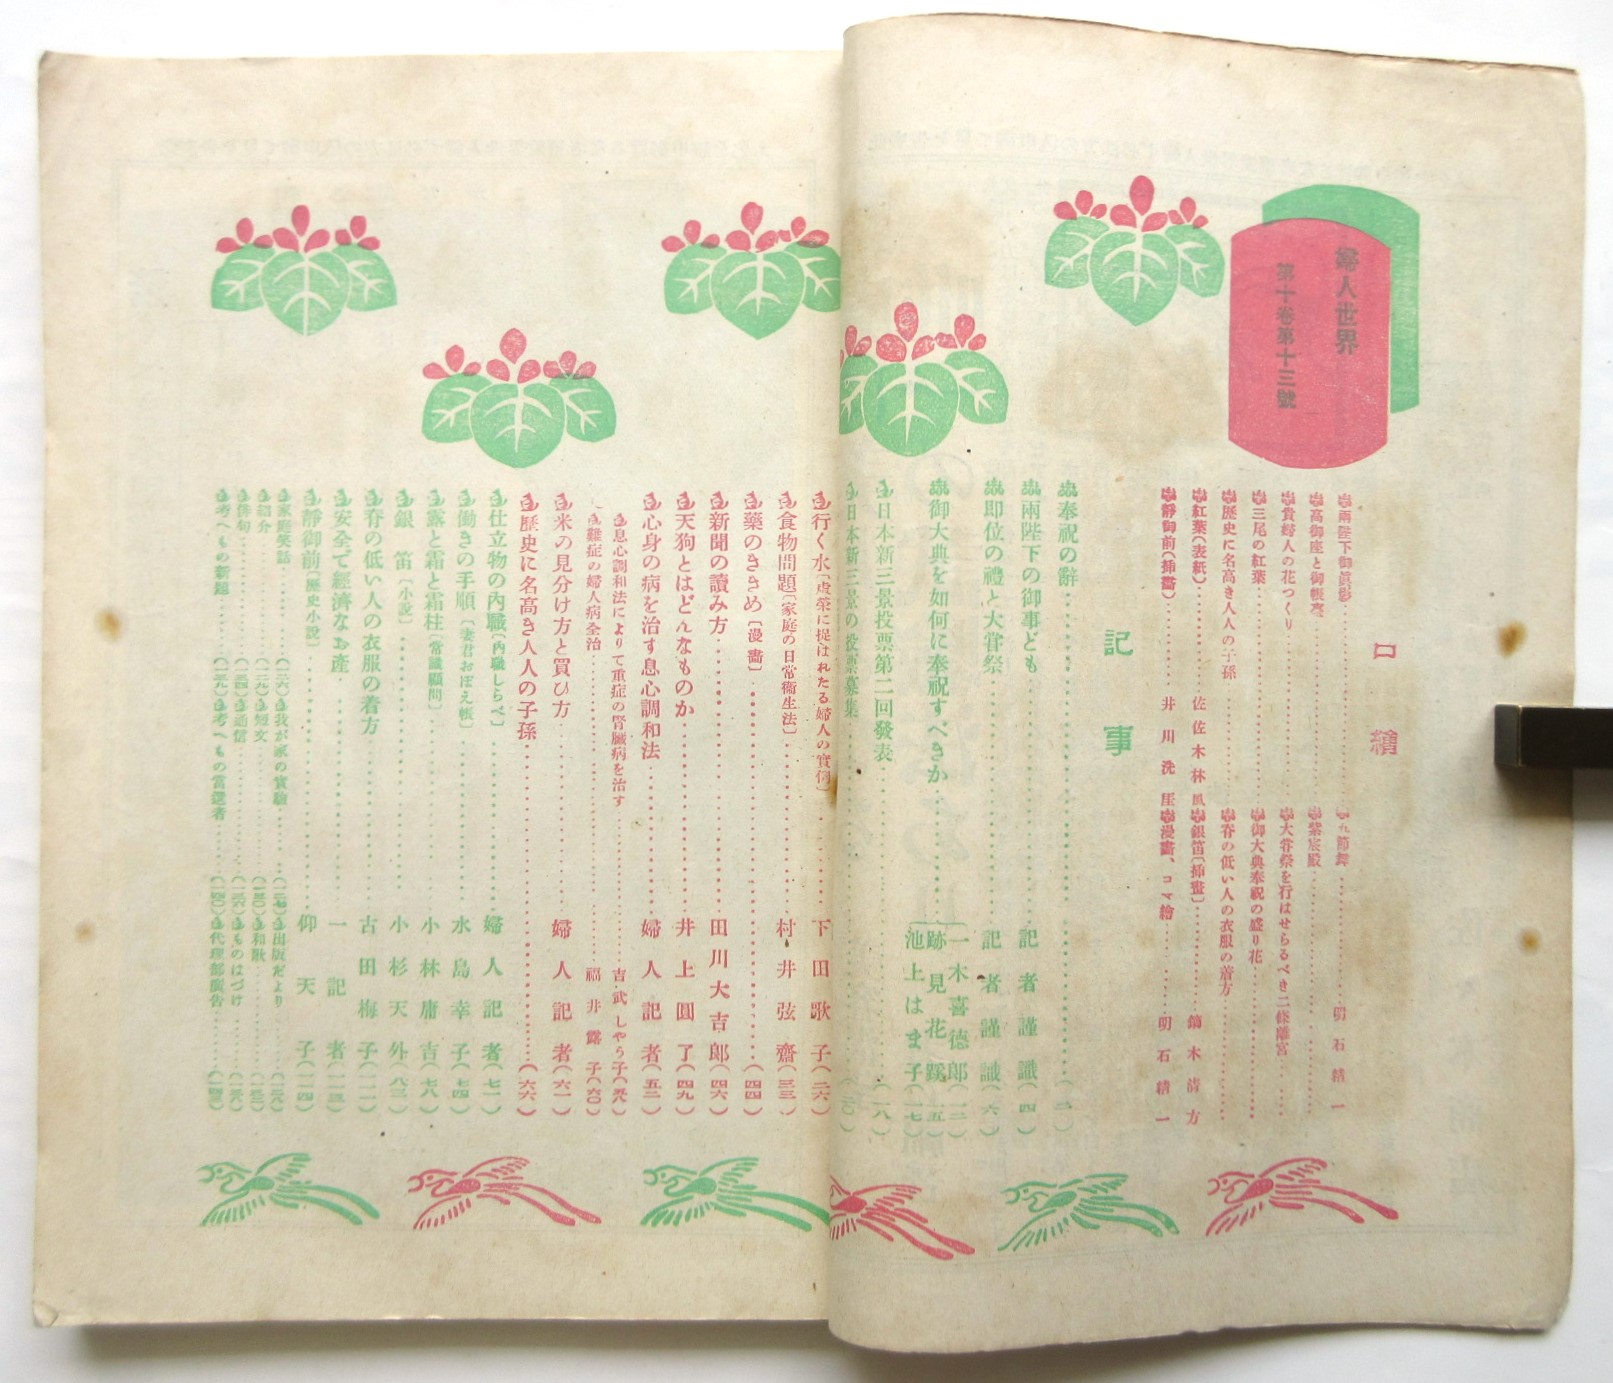 婦人世界
第十卷第十三號
口繪
兩陛下御眞影
高御座と御帳臺
貴婦人の花つくり
三尾の紅葉
歷史に名高き人人の子孫
紅葉(表紙) 佐佐木林風
靜御前(揷畵) 井川洗厓
五節舞 明石精一
紫宸殿
大甞祭を行はせらるべき二條離宮
御大典奉祝の盛り花
脊の低い人の衣服の着方
銀笛(揷畵) 鏑木淸方
漫畵、コマ繪 明石精一
記事
奉祝の辭 (二)
兩陛下の御事ども 記者謹識(四)
卽位の禮と大甞祭 記者謹識(六)
御大典を如何に奉祝すべきか
一木喜德郞(一二)
跡見花蹊(一五)
池上はま子(一七)
日本新三景投票第二回發表 (一八)
日本新三景の投票募集 (二〇)
行く水〔虛榮に捉はれたる婦人の實例〕 下田歌子(二六)
食物問題〔家庭の日常衞生法〕 村井弦齋(三三)
藥のききめ〔漫畵〕 (四四)
新聞の讀み方 田川大吉郞(四六)
天狗とはどんなものか 井上圓了(四九)
心身の病を治す息心調和法 婦人記者(五二)
息心調和法によりて重症の腎臟病を治す 吉武しやう子(五八)
難症の婦人病全治 福井露子(六〇)
米の見分け方と買ひ方 婦人記者(六一)
歷史に名高き人人の子孫 (六六)
仕立物の內職〔內職しらべ〕 婦人記者(七一)
働きの手順〔妻君おぼえ帳〕 水島幸子(七四)
露と霜と霜柱〔常識顧問〕 小林庸吉(七八)
銀笛〔小說〕 小杉天外(八三)
脊の低い人の衣服の着方 古田梅子(一一一)
安全で經濟なお產 一記者(一一三)
靜御前〔歷史小說〕 仰天子(一一四)
家庭笑話 (一二六) 我が家の實驗 出版だより
紹介 (一二九) 短文 和歌
俳句 通信 ものはづけ
考へもの新題 考へもの當選者 (一四〇) 代理部廣告